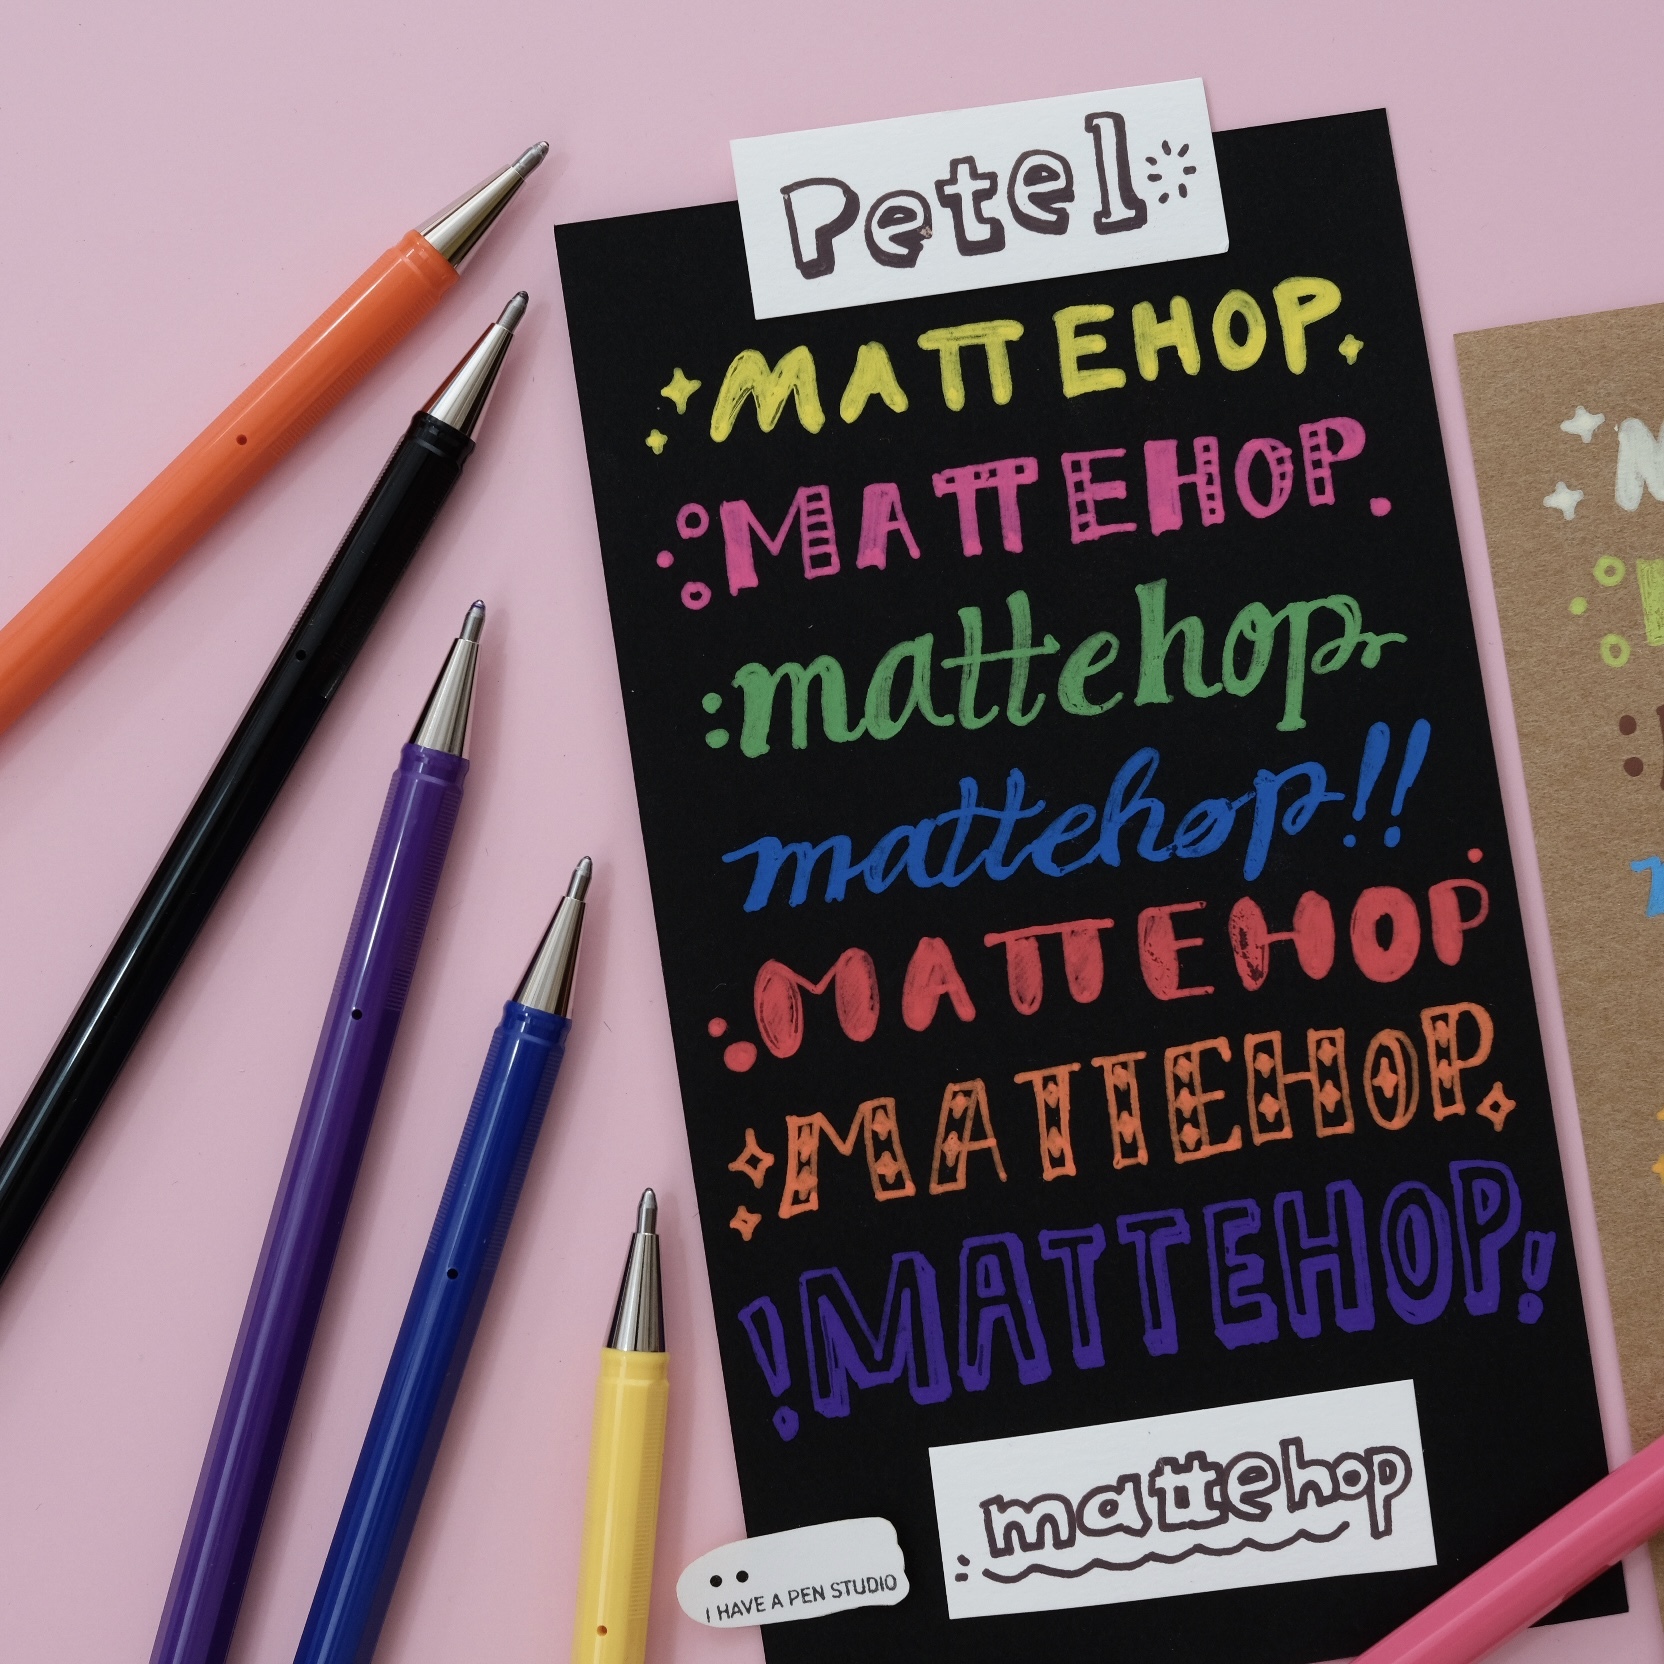 Petel
MATTEHOP.
MATTEHOP.
mattehop
mattehop!!
MATTEHOP
MATTEHOP
!MATTEHOP!
mattehop
I HAVE A PEN STUDIO